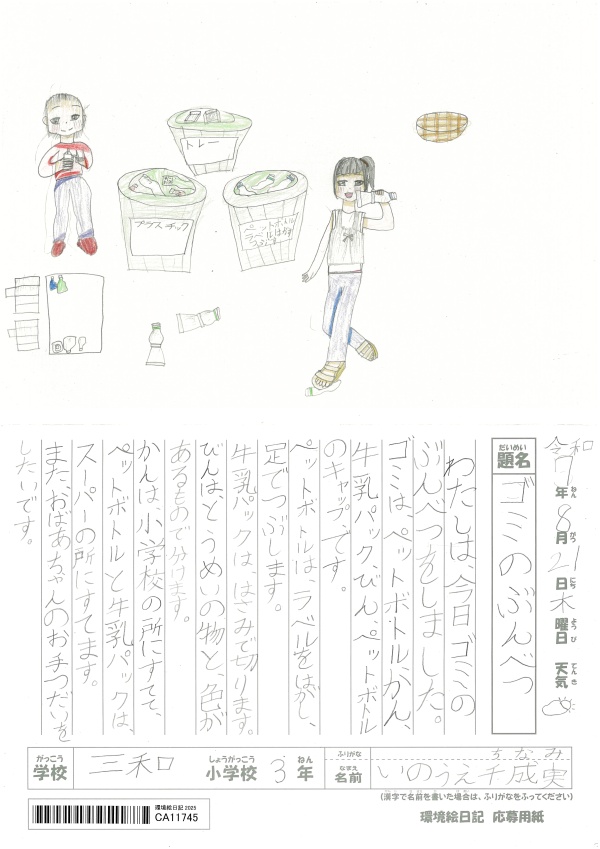 トレー
プラスチック
ペットボトル
ラベルはがす
令和7年8月21日木曜日 天気
ねん がつ にち ようび てんき
だいめい
題名
ゴミのぶんべつ
わたしは、今日ゴミの
ぶんべつをしました。
ゴミは、ペットボトル、かん、
牛乳パック、びん、ペットボトル
のキャップ、です。
ペットボトルは、ラベルをはがし、
足でつぶします。
牛乳パックは、はさみで切ります。
びんはとうめいの物と、色が
あるもので分けます。
かんは、小学校の所にすてて、
ペットボトルと牛乳パックは、
スーパーの所にすてます。
また、おばあちゃんのお手つだいを
したいです。
がっこう しょうがっこう ねん
学校 三和 小学校 3年
ふりがな ちなみ
なまえ
名前 いのうえ千成実
(漢字で名前を書いた場合は、ふりがなをふってください)
環境絵日記 2025
CA11745
環境絵日記 応募用紙